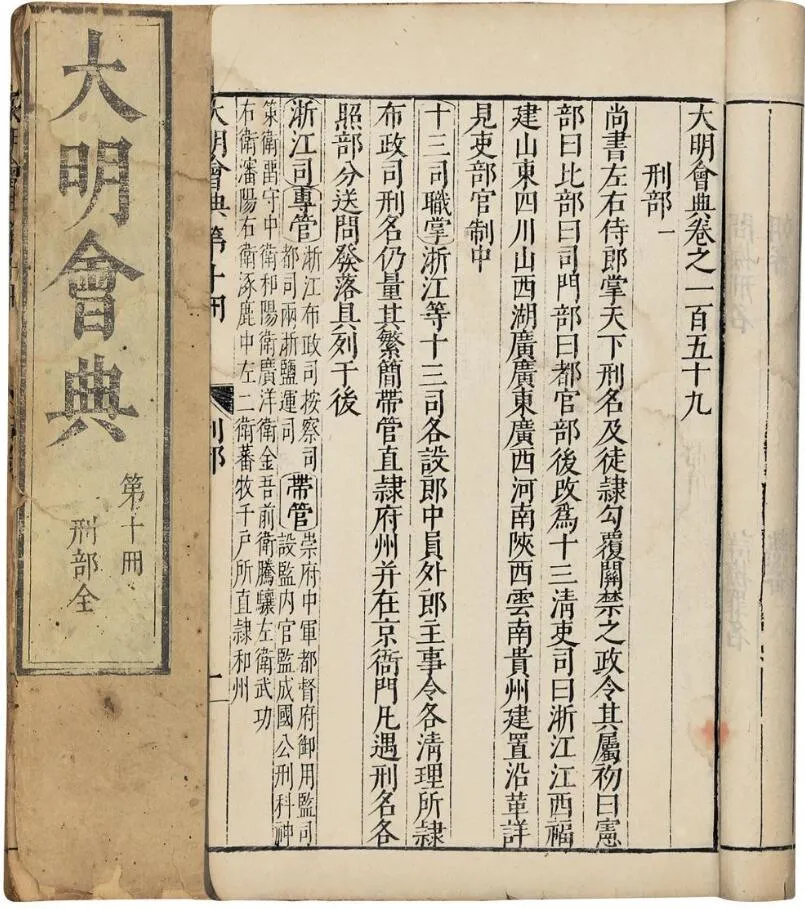 大明會典卷之一百五十九
刑部一
尚書左右侍郎掌天下刑名及徒隸勾覆關禁之政令其屬初曰憲
部曰比部曰司門部曰都官部後改爲十三清吏司曰浙江江西福
建山東四川山西湖廣廣東廣西河南陝西雲南貴州建置沿革詳
見吏部官制中
十三司職掌浙江等十三司各設郎中員外郎主事令各清理所隸
布政司刑名仍量其繁簡帶管直隸府州并在京衙門凡遇刑名各
照部分送問發落具列于後
浙江司專管
浙江布政司按察司
都司兩浙鹽運司
帶管
崇府中軍都督府御用監司
設監内官監成國公刑科神
策衛留守中衛和陽衛廣洋衛金吾前衛騰驤左衛武功
右衛瀋陽右衛涿鹿中左二衛蕃牧千戶所直隸和州
大明會典第十冊
大明會典
第十冊
刑部全